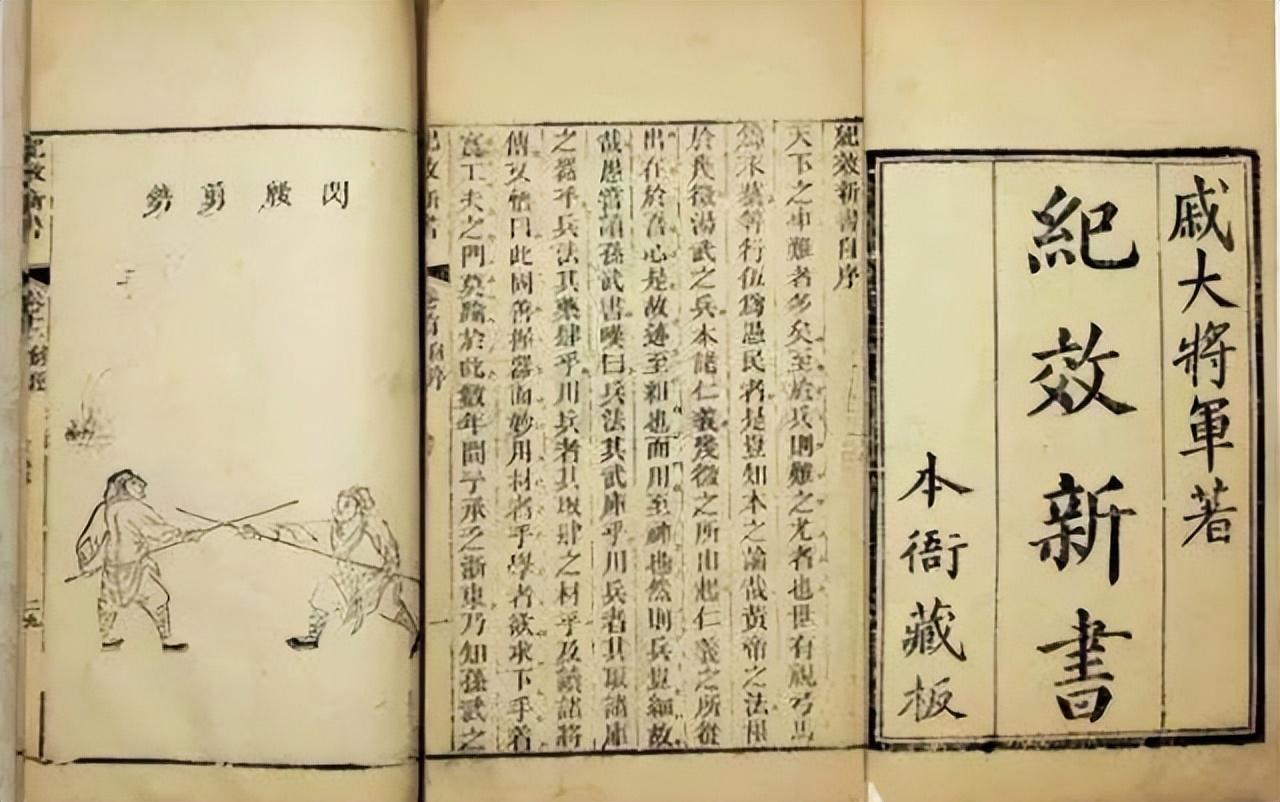 戚大將軍著
紀效新書
本衙藏板
紀效新書自序
天下之事難者多矣至於兵則難之尤者也世有視弓馬
爲末藝等行伍爲愚民者是豈知本之論哉黃帝之法根
於民徵湯武之兵本諸仁義殘徵之所由起仁義之所從
出在於吾心是故迹至粗也而用至神也然則兵豈細故
哉愚嘗讀孫武書嘆曰兵法其武庫乎用兵者其取諸庫
之器乎兵法其藥肆乎用兵者其取肆之材乎及讀諸將
傳又悟曰此固善握器而妙用材者乎學者欲求下手着
實工夫之門莫踰於此數年間予承乏浙東乃知孫武之
紀效新書
閃殿剪勢
紀效新書